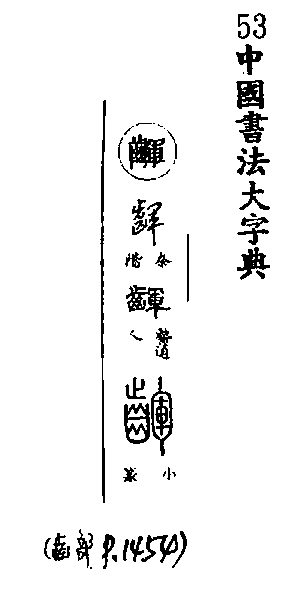 53
中國書法大字典
齳
齳
齳
齳
小篆
(齒部 P.1454)